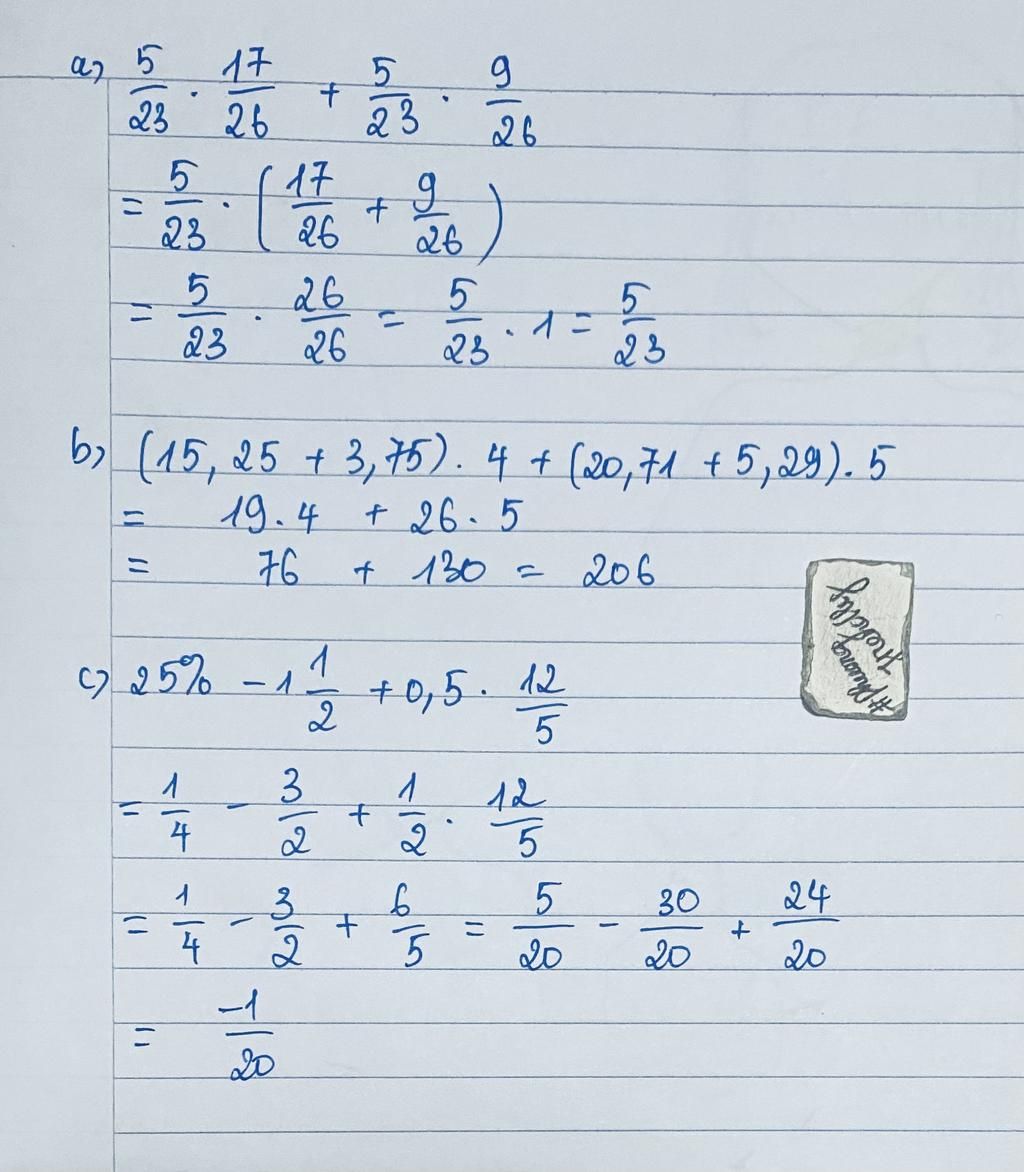 a) 5/23 . 17/26 + 5/23 . 9/26
= 5/23 . (17/26 + 9/26)
= 5/23 . 26/26 = 5/23 . 1 = 5/23
b) (15,25 + 3,75) . 4 + (20,71 + 5,29) . 5
= 19 . 4 + 26 . 5
= 76 + 130 = 206
c) 25% - 1 1/2 + 0,5 . 12/5
= 1/4 - 3/2 + 1/2 . 12/5
= 1/4 - 3/2 + 6/5 = 5/20 - 30/20 + 24/20
= -1/20